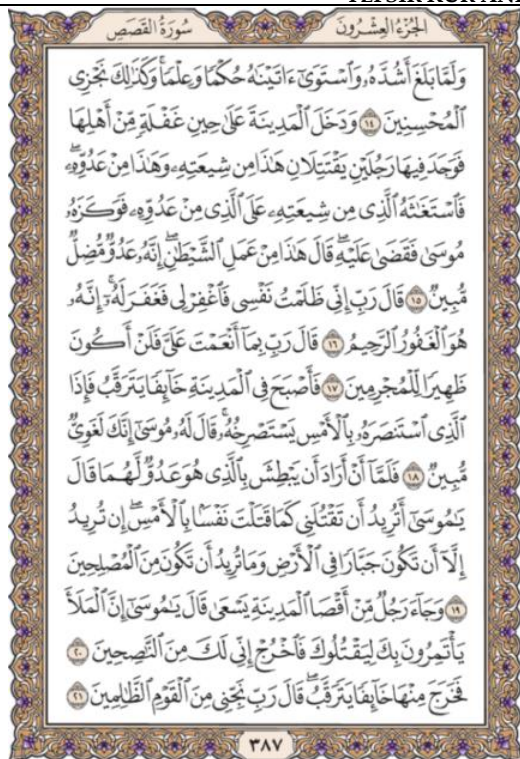 سُورَةُ القَصَصِ
الجُزءُ العِشْرُونَ
وَلَمَّا بَلَغَ أَشُدَّهُۥ وَٱسْتَوَىٰٓ ءَاتَيْنَٰهُ حُكْمًا وَعِلْمًا ۚ وَكَذَٰلِكَ نَجْزِى
ٱلْمُحْسِنِينَ ١٤ وَدَخَلَ ٱلْمَدِينَةَ عَلَىٰ حِينِ غَفْلَةٍ مِّنْ أَهْلِهَا
فَوَجَدَ فِيهَا رَجُلَيْنِ يَقْتَتِلَانِ هَٰذَا مِن شِيعَتِهِۦ وَهَٰذَا مِنْ عَدُوِّهِۦ ۖ
فَٱسْتَغَٰثَهُ ٱلَّذِى مِن شِيعَتِهِۦ عَلَى ٱلَّذِى مِنْ عَدُوِّهِۦ فَوَكَزَهُۥ
مُوسَىٰ فَقَضَىٰ عَلَيْهِ ۖ قَالَ هَٰذَا مِنْ عَمَلِ ٱلشَّيْطَٰنِ ۖ إِنَّهُۥ عَدُوٌّ مُّضِلٌّ
مُّبِينٌ ١٥ قَالَ رَبِّ إِنِّى ظَلَمْتُ نَفْسِى فَٱغْفِرْ لِى فَغَفَرَ لَهُۥٓ ۚ إِنَّهُۥ
هُوَ ٱلْغَفُورُ ٱلرَّحِيمُ ١٦ قَالَ رَبِّ بِمَآ أَنْعَمْتَ عَلَىَّ فَلَنْ أَكُونَ
ظَهِيرًا لِّلْمُجْرِمِينَ ١٧ فَأَصْبَحَ فِى ٱلْمَدِينَةِ خَآئِفًا يَتَرَقَّبُ فَإِذَا
ٱلَّذِى ٱسْتَنصَرَهُۥ بِٱلْأَمْسِ يَسْتَصْرِخُهُۥ ۚ قَالَ لَهُۥ مُوسَىٰٓ إِنَّكَ لَغَوِىٌّ
مُّبِينٌ ١٨ فَلَمَّآ أَنْ أَرَادَ أَن يَبْطِشَ بِٱلَّذِى هُوَ عَدُوٌّ لَّهُمَا قَالَ
يَٰمُوسَىٰٓ أَتُرِيدُ أَن تَقْتُلَنِى كَمَا قَتَلْتَ نَفْسًۢا بِٱلْأَمْسِ ۖ إِن تُرِيدُ
إِلَّآ أَن تَكُونَ جَبَّارًا فِى ٱلْأَرْضِ وَمَا تُرِيدُ أَن تَكُونَ مِنَ ٱلْمُصْلِحِينَ
١٩ وَجَآءَ رَجُلٌ مِّنْ أَقْصَا ٱلْمَدِينَةِ يَسْعَىٰ قَالَ يَٰمُوسَىٰٓ إِنَّ ٱلْمَلَأَ
يَأْتَمِرُونَ بِكَ لِيَقْتُلُوكَ فَٱخْرُجْ إِنِّى لَكَ مِنَ ٱلنَّٰصِحِينَ ٢٠
فَخَرَجَ مِنْهَا خَآئِفًا يَتَرَقَّبُ ۖ قَالَ رَبِّ نَجِّنِى مِنَ ٱلْقَوْمِ ٱلظَّٰلِمِينَ ٢١
٣٨٧